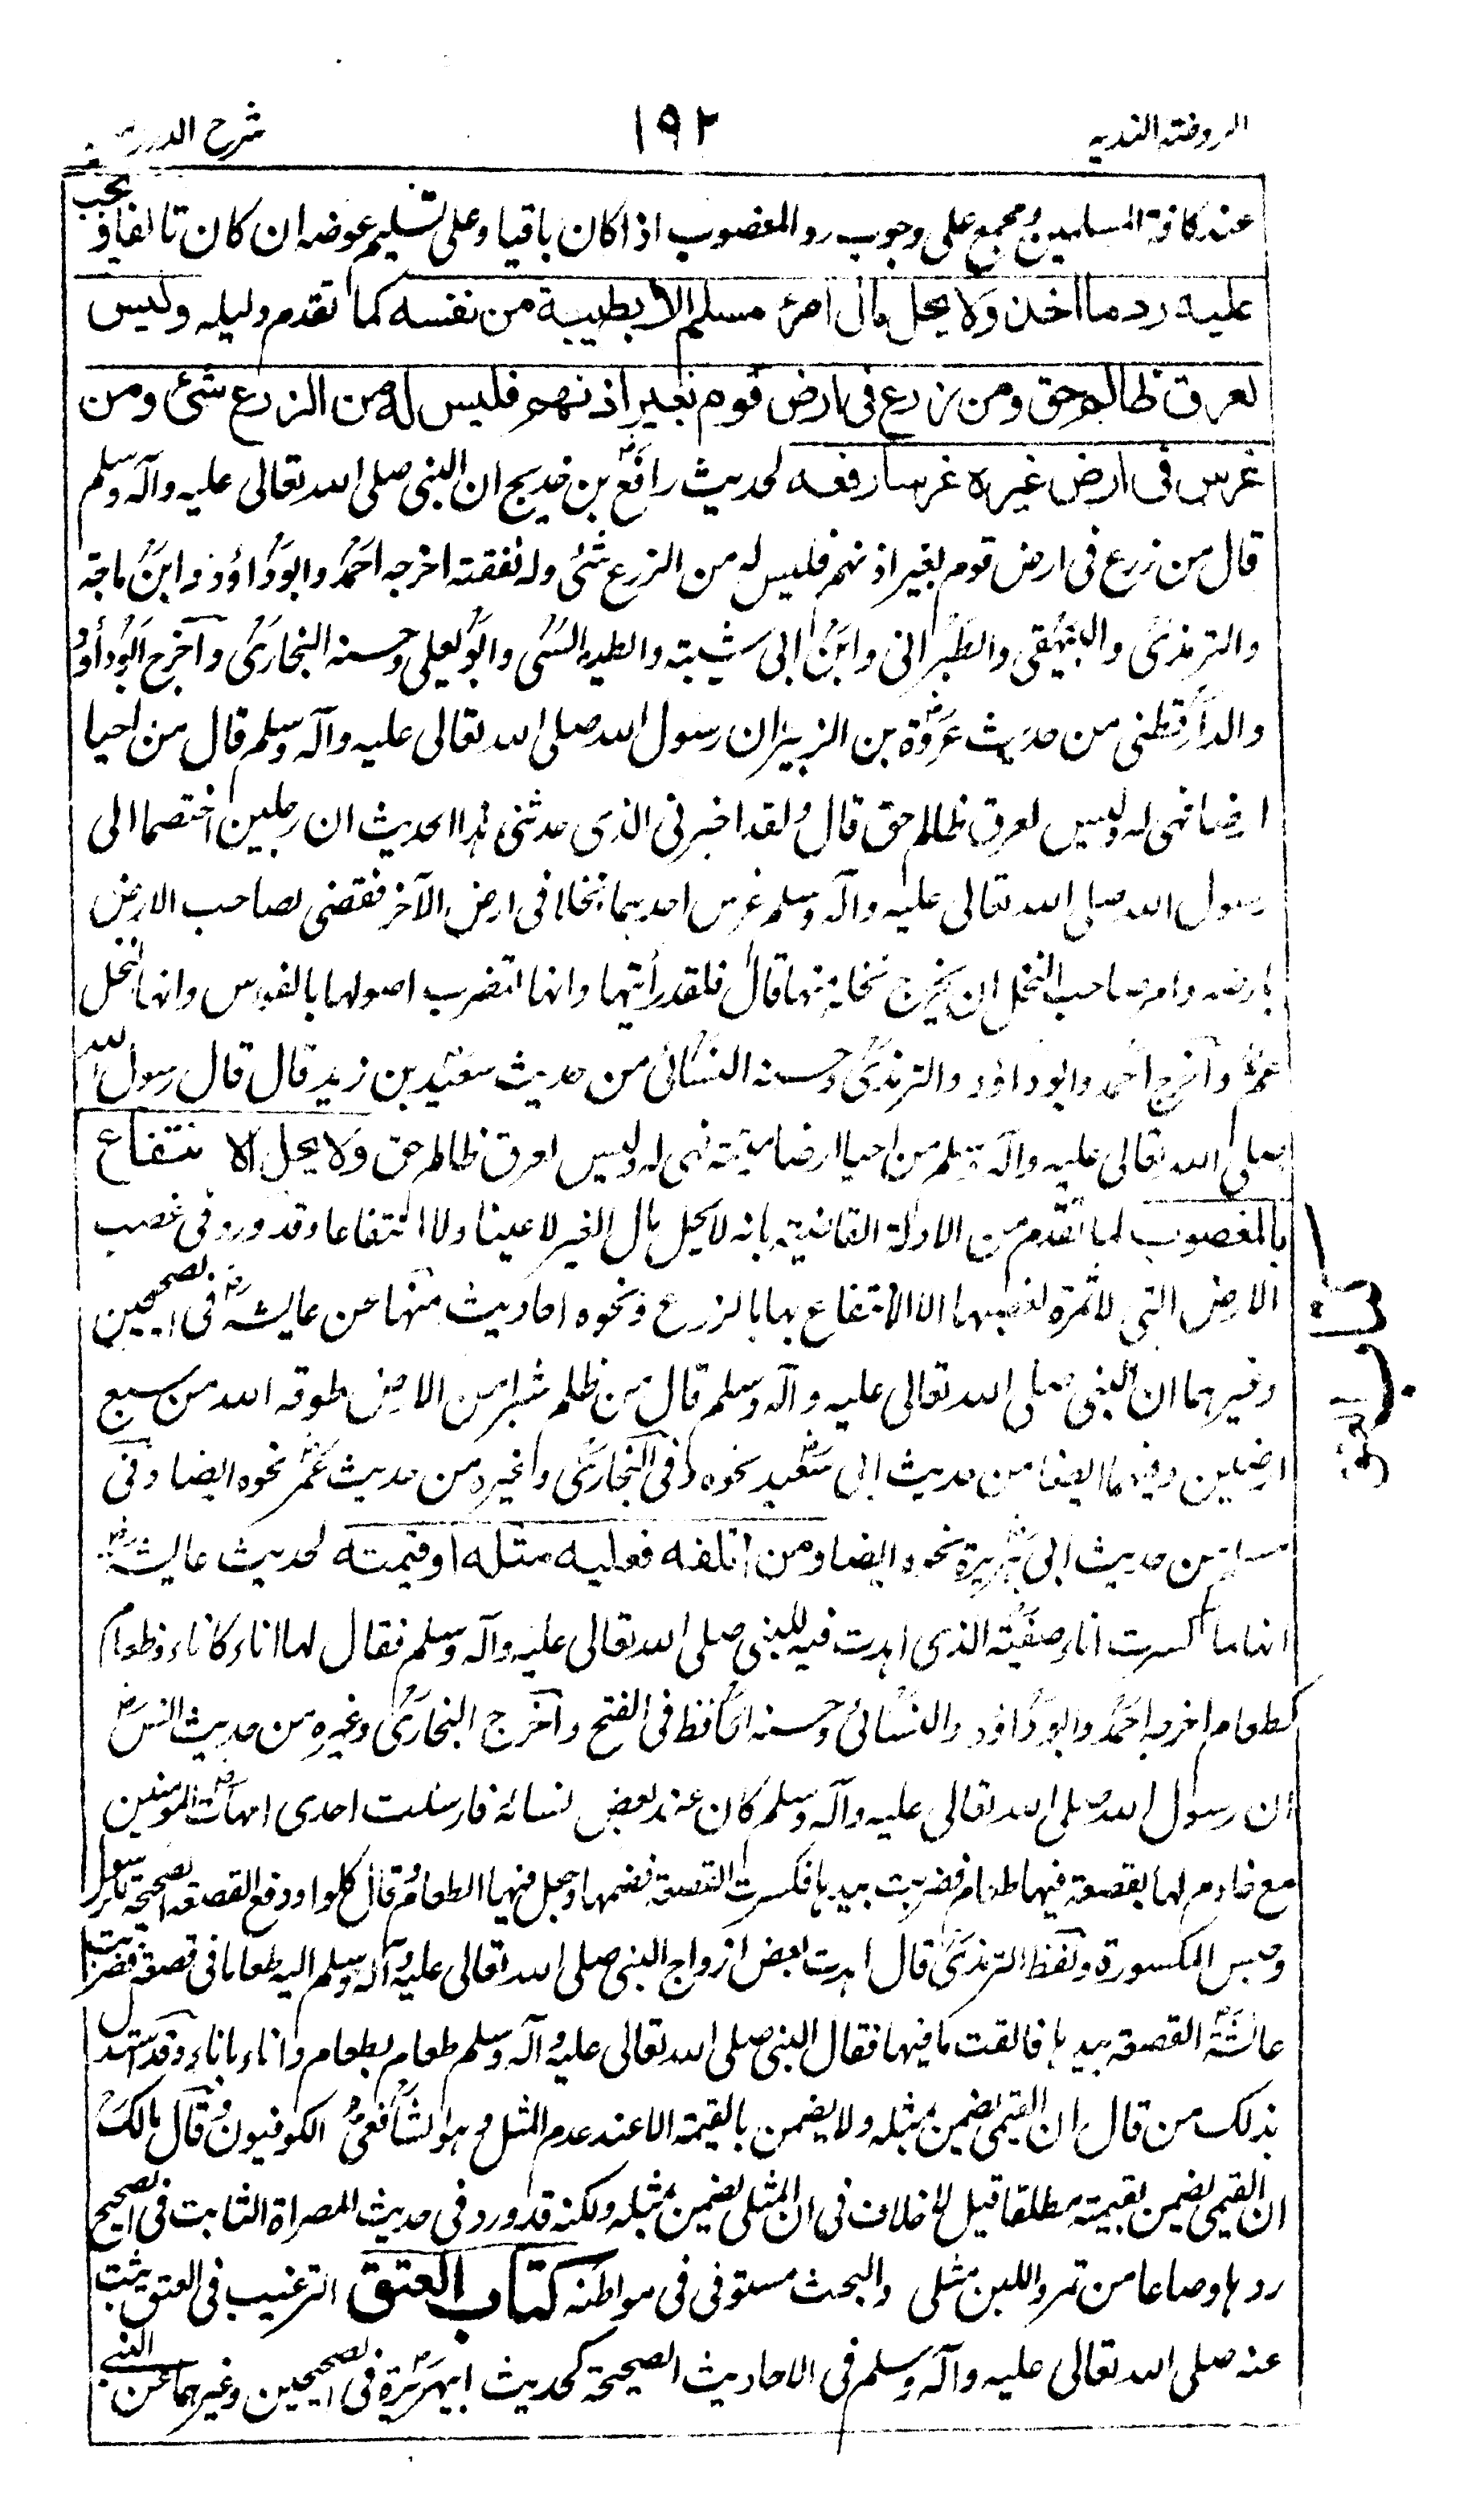 الروضة الندية ١٩٢ شرح الدرر
عند كافة المسلمين ومجمع على وجوب رد المغصوب اذا كان باقيا وعلى تسليم عوضه ان كان تالفا ويجب
عليه رد ما اخذ ولا يحل مال امرئ مسلم الا بطيبة من نفسه كما تقدم دليله وليس
لعرق ظالم حق ومن زرع فى ارض قوم بغير اذنهم فليس له من الزرع شئ ومن
غرس فى ارض غيره غرسا رفعه لحديث رافع بن خديج ان النبى صلى الله تعالى عليه وآله وسلم
قال من زرع فى ارض قوم بغير اذنهم فليس له من الزرع شئ وله نفقته اخرجه احمد وابو داؤد وابن ماجة
والترمذى والبيهقى والطبرانى وابن ابى شيبة والطيالسى وابو يعلى وحسنه البخارى واخرج ابو داؤد
والدارقطنى من حديث عروة بن الزبير ان رسول الله صلى الله تعالى عليه وآله وسلم قال من احيا
ارضا فهى له وليس لعرق ظالم حق قال ولقد اخبرنى الذى حدثنى هذا الحديث ان رجلين اختصما الى
رسول الله صلى الله تعالى عليه وآله وسلم غرس احدهما نخلا فى ارض الآخر فقضى لصاحب الارض
بارضه وامر صاحب النخل ان يخرج نخله منها قال فلقد رأيتها وانها لتضرب اصولها بالفوس وانها لنخل
عم واخرج احمد وابو داؤد والترمذى وحسنه النسائى من حديث سعيد بن زيد قال قال رسول الله
صلى الله تعالى عليه وآله وسلم من احيا ارضا ميتة فهى له وليس لعرق ظالم حق ولا يحل الانتفاع
بالمغصوب لما تقدم من الادلة القاضية بانه لا يحل مال الغير لا عينا ولا انتفاعا وقد ورد فى غصب
الارض التى لا ثمرة لغصبها الا الانتفاع بها بالزرع ونحوه احاديث منها عن عايشة رض فى الصحيحين
وغيرهما ان النبى صلى الله تعالى عليه وآله وسلم قال من ظلم شبرا من الارض طوقه الله من سبع
ارضين وفيهما ايضا من حديث ابى سعيد نحوه وفى البخارى وغيره من حديث عمر نحوه ايضا وفى
مسلم من حديث ابى هريرة نحوه ايضا ومن اتلفه فعليه مثله او قيمته لحديث عايشة رض
انها لما كسرت اناء صفية الذى اهدت فيه للنبى صلى الله تعالى عليه وآله وسلم فقال لها اناء كاناء وطعام
كطعام اخرجه احمد وابو داؤد والنسائى وحسنه الحافظ فى الفتح واخرج البخارى وغيره من حديث انس رض
ان رسول الله صلى الله تعالى عليه وآله وسلم كان عند بعض نسائه فارسلت احدى امهات المؤمنين
مع خادم لها بقصعة فيها طعام فضربت بيدها فكسرت القصعة فضمها وجعل فيها الطعام وقال كلوا ودفع القصعة الصحيحة للرسول
وحبس المكسورة ولفظ الترمذى قال اهدت بعض ازواج النبى صلى الله تعالى عليه وآله وسلم اليه طعاما فى قصعة فضربت
عائشة القصعة بيدها فالقت ما فيها فقال النبى صلى الله تعالى عليه وآله وسلم طعام بطعام واناء باناء وقد استدل
بذلك من قال ان القيمى يضمن بمثله ولا يضمن بالقيمة الا عند عدم المثل وهو الشافعى والكوفيون وقال مالك
ان القيمى يضمن بقيمته مطلقا قيل لا خلاف فى ان المثلى يضمن بمثله ولكنه قد ورد فى حديث المصراة الثابت فى الصحيح
ردها وصاعا من تمر واللبن مثلى والبحث مستوفى فى مواطنه كتاب العتق الترغيب فى العتق ثبت
عنه صلى الله تعالى عليه وآله وسلم فى الاحاديث الصحيحة كحديث ابيهريرة فى الصحيحين وغيرهما عن النبى
كتاب العتق